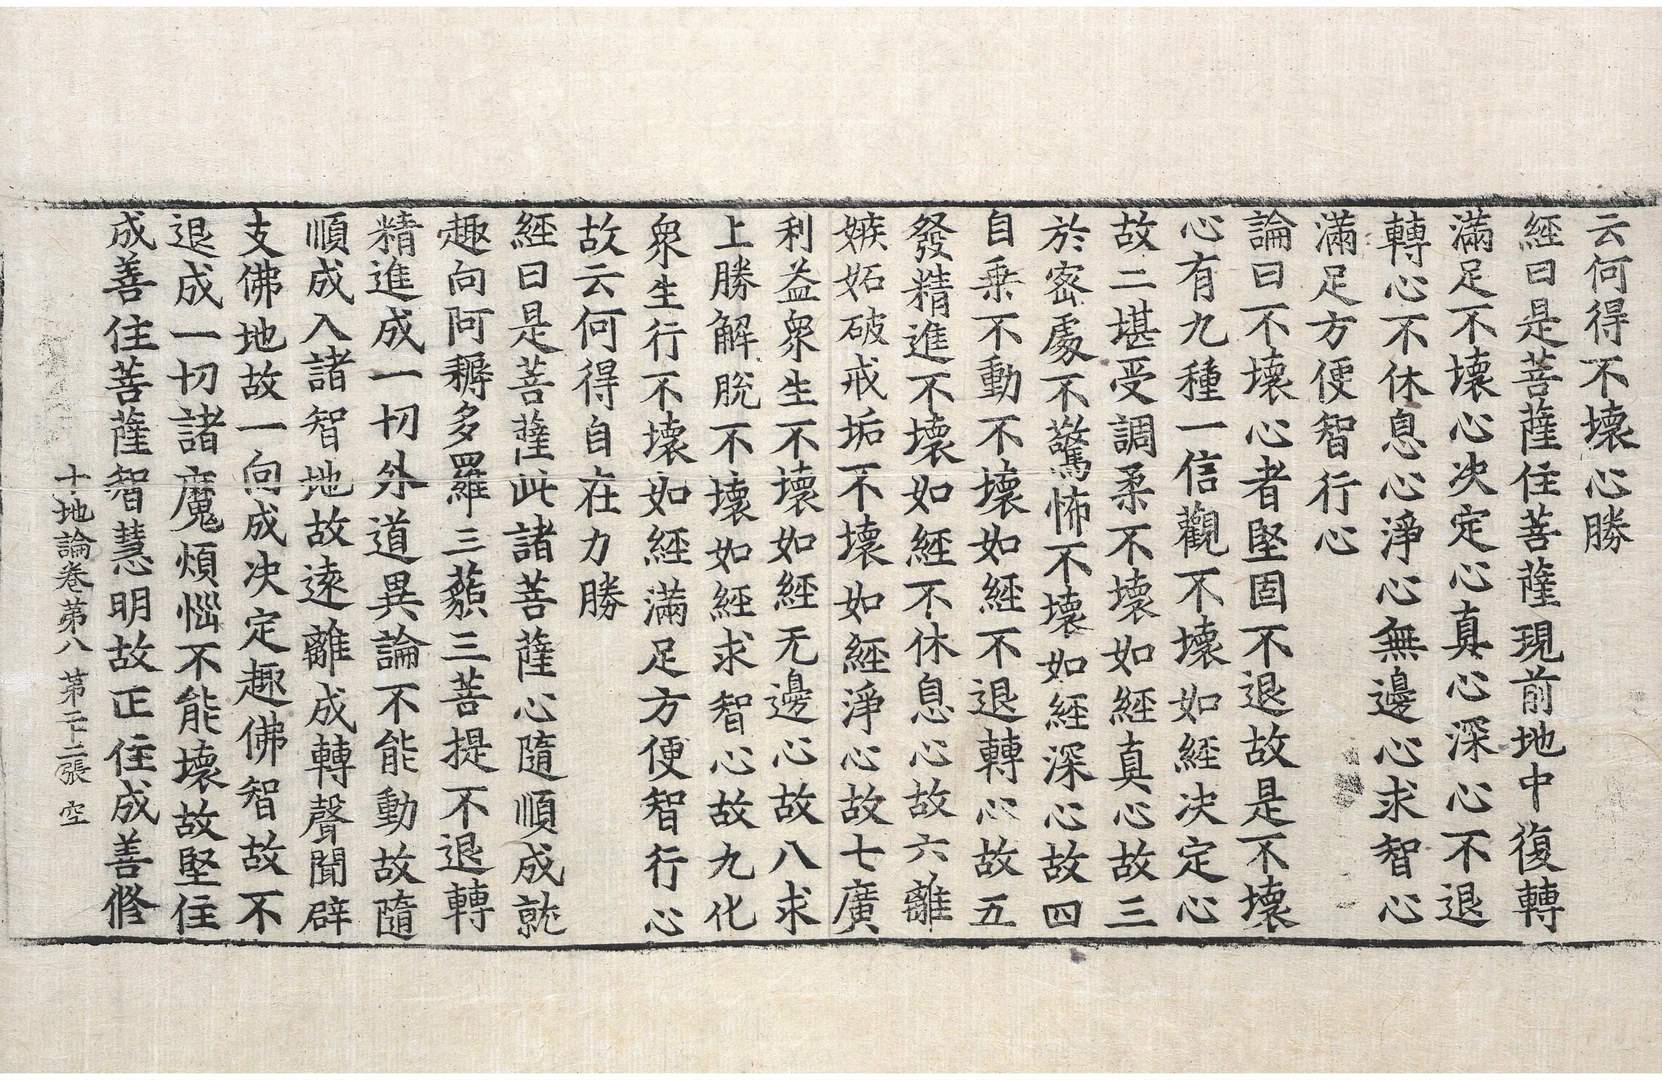 云何得不壞心勝
經曰是菩薩住菩薩現前地中復轉
滿足不壞心決定心真心深心不退
轉心不休息心淨心無邊心求智心
滿足方便智行心
論曰不壞心者堅固不退故是不壞
心有九種一信觀不壞如經決定心
故二堪受調柔不壞如經真心故三
於密處不驚怖不壞如經深心故四
自乗不動不壞如經不退轉心故五
發精進不壞如經不休息心故六離
嫉妬破戒垢不壞如經淨心故七廣
利益衆生不壞如經无邊心故八求
上勝解脫不壞如經求智心故九化
衆生行不壞如經滿足方便智行心
故云何得自在力勝
經曰是菩薩此諸菩薩心隨順成就
趣向阿耨多羅三藐三菩提不退轉
精進成一切外道異論不能動故隨
順成入諸智地故遠離成轉聲聞辟
支佛地故一向成決定趣佛智故不
退成一切諸魔煩惱不能壞故堅住
成善住菩薩智慧明故正住成善脩
十地論卷第八 第二十二張 空